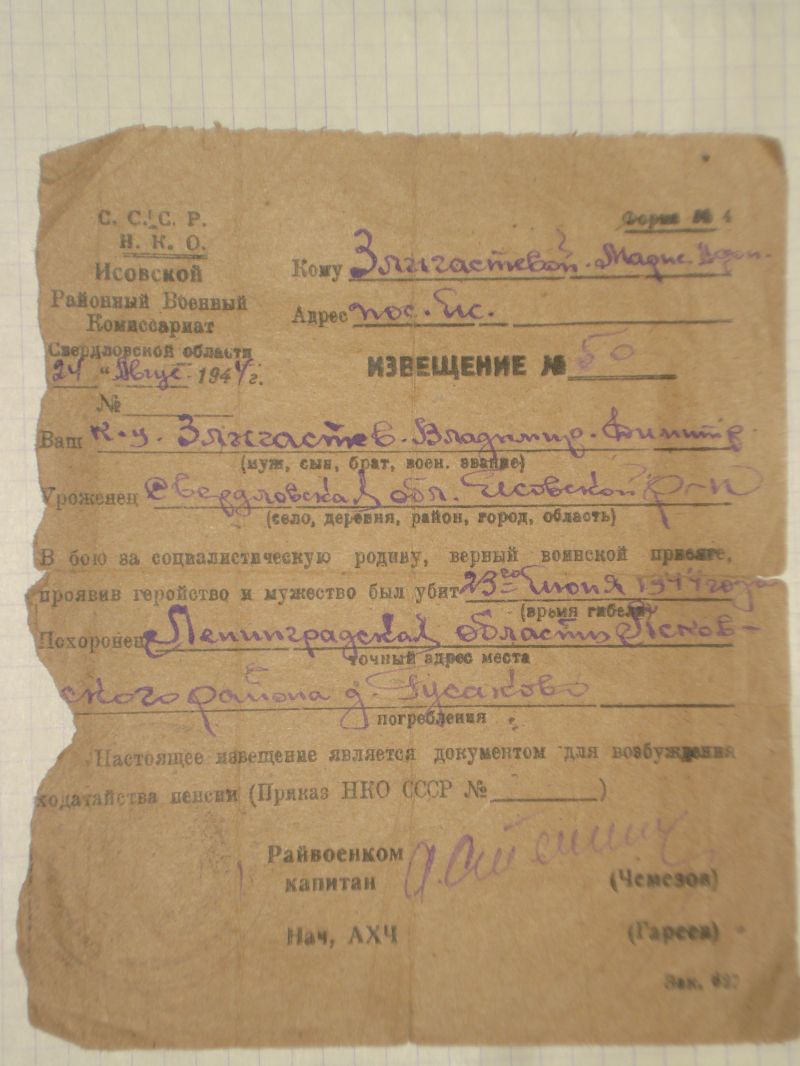 С. С. С. Р.
Н. К. О.
Исовской
Районный Военный
Комиссариат
Свердловской области
24 " Август. 1944 г.
№
Форма № 4
Кому Злыгастевой. Марие
Адрес пос. Ис.
ИЗВЕЩЕНИЕ № 50
Ваш Злыгастев. Владимир. Димитр.
(муж, сын, брат, воен. звание)
Уроженец Свердловская обл. Исовской р-н
(село, деревня, район, город, область)
В бою за социалистическую родину, верный воинской присяге,
проявив геройство и мужество был убит 23го Июня 1944 года
(время гибели)
Похоронен Ленинградская область Псков-
точный адрес места
ского района д. Гусаково
погребения
Настоящее извещение является документом для возбуждения
ходатайства пенсии (Приказ НКО СССР № )
Райвоенком
капитан (Чемезов)
Нач, АХЧ (Гареев)
Зак.